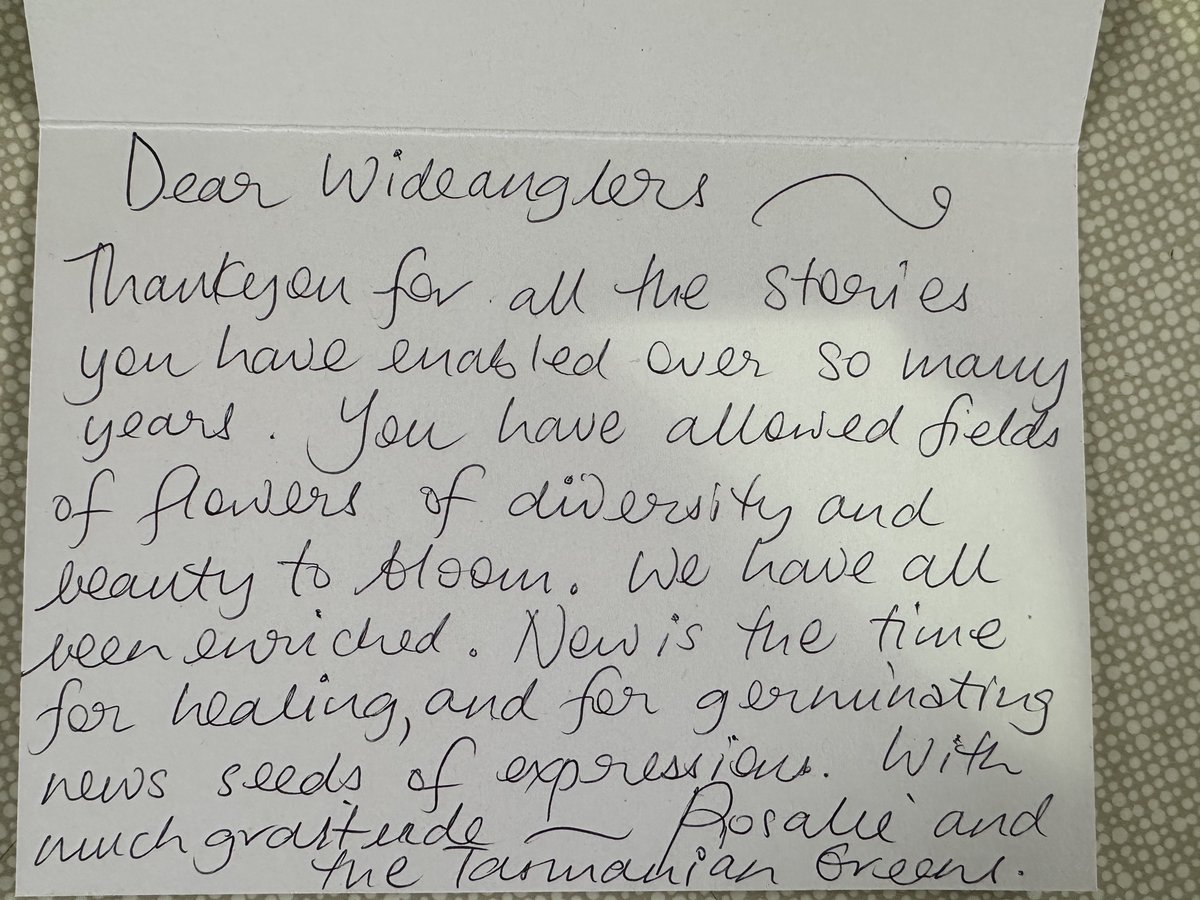 Dear Wideanglers
Thankyou for all the stories
you have enabled over so many
years. You have allowed fields
of flowers of diversity and
beauty to bloom. We have all
been enriched. Now is the time
for healing, and for germinating
news seeds of expressions. With
much gratitude — Rosalie and
the Tasmanian Greens.